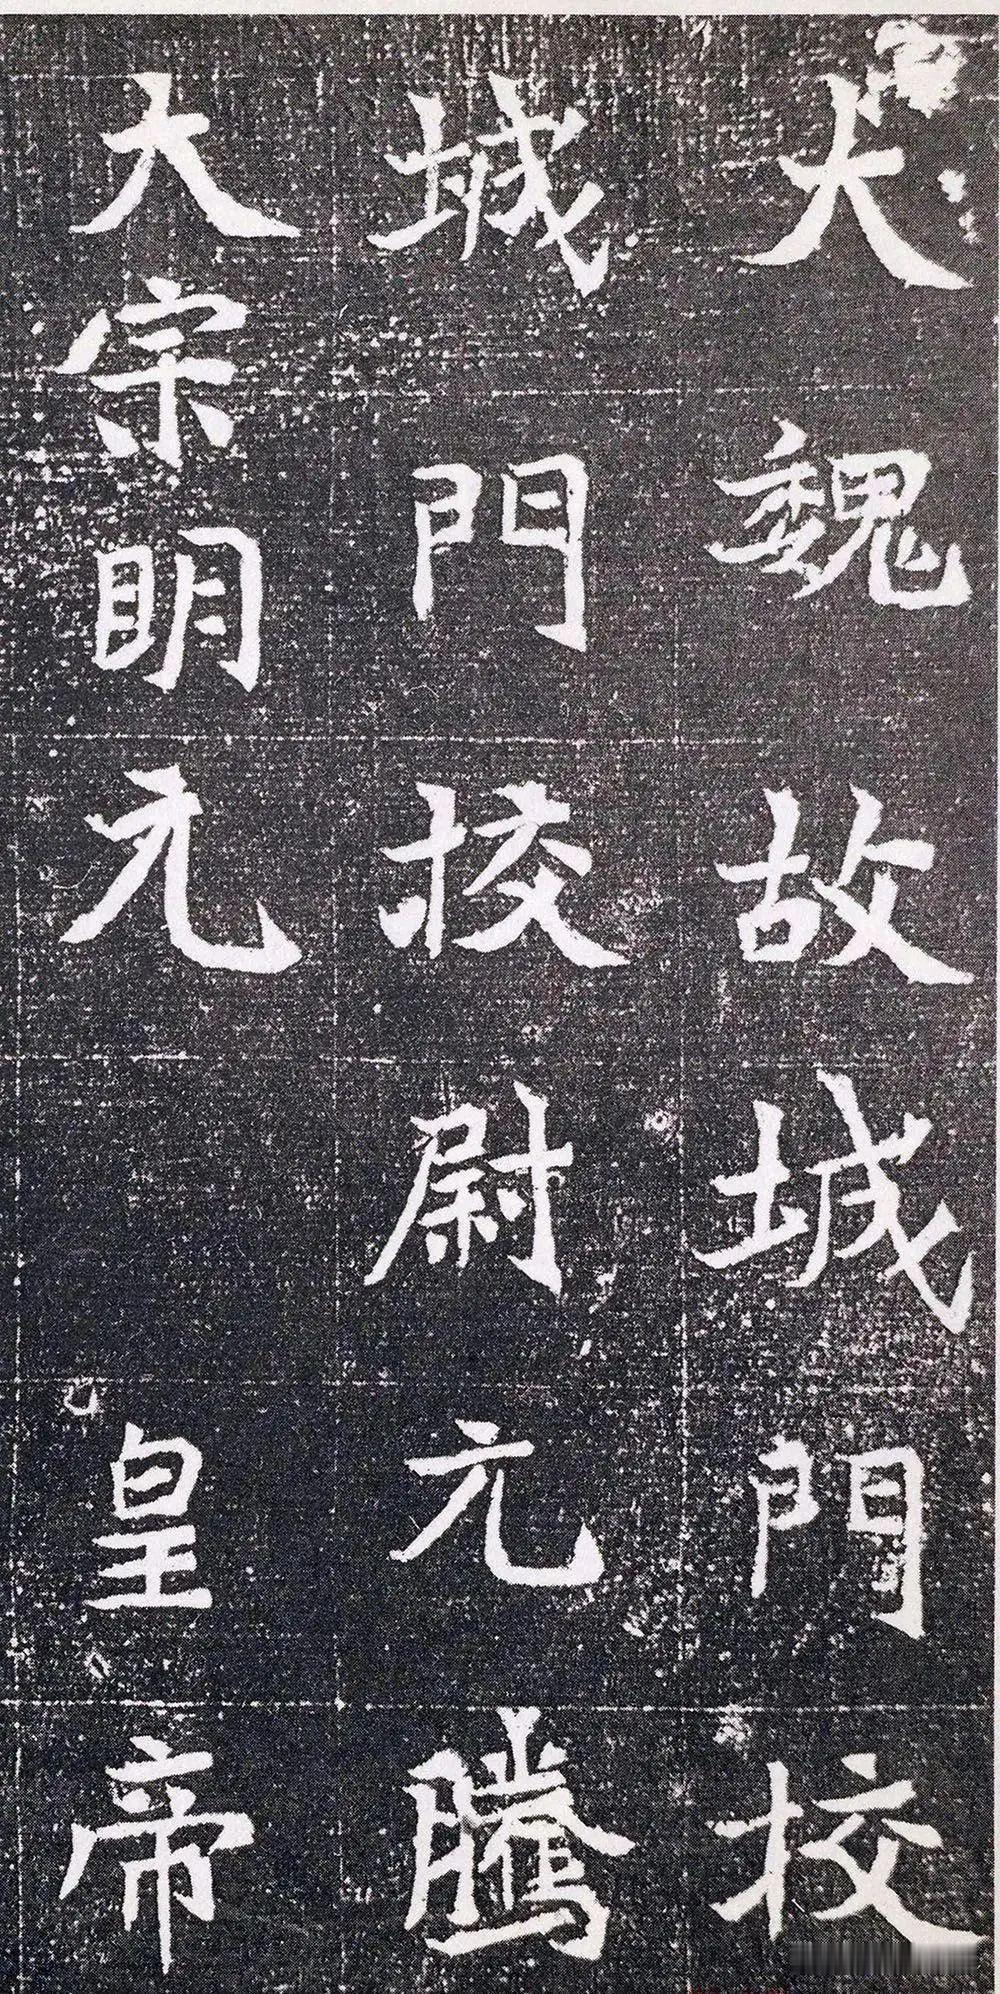 大魏故城門校
城門校尉元騰
太宗明元皇帝